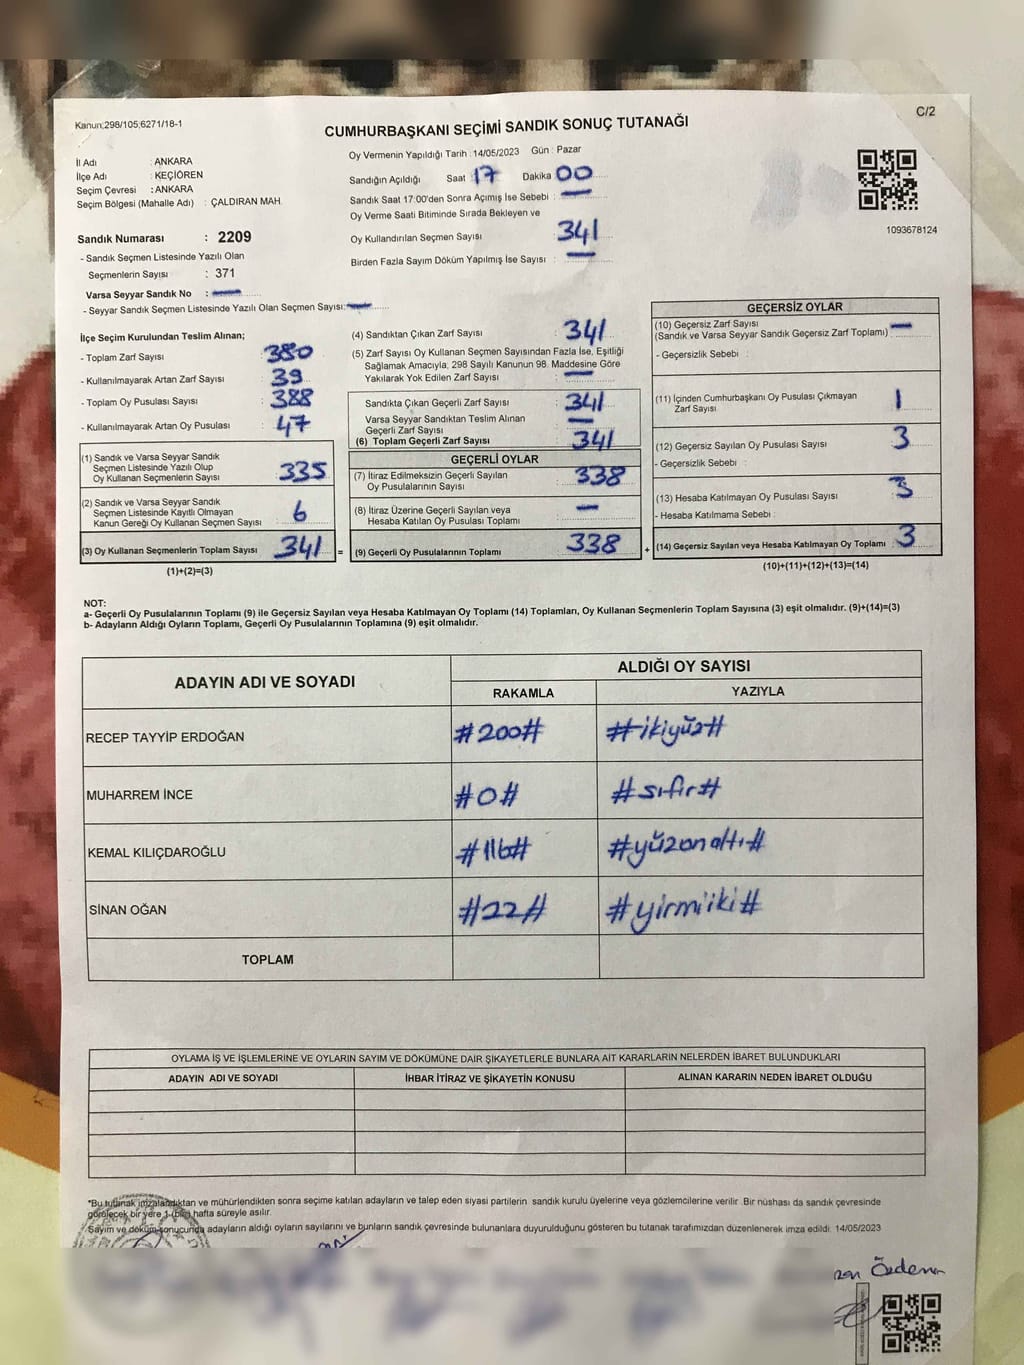 Kanun;298/105;6271/18-1
C/2
CUMHURBAŞKANI SEÇİMİ SANDIK SONUÇ TUTANAĞI
İl Adı : ANKARA
İlçe Adı : KEÇİÖREN
Seçim Çevresi : ANKARA
Seçim Bölgesi (Mahalle Adı) : ÇALDIRAN MAH.
Oy Vermenin Yapıldığı Tarih : 14/05/2023 Gün : Pazar
Sandığın Açıldığı Saat 17 Dakika 00
Sandık Saat 17:00'den Sonra Açımış İse Sebebi : —
Oy Verme Saati Bitiminde Sırada Bekleyen ve
Oy Kullandırılan Seçmen Sayısı : 341
Birden Fazla Sayım Döküm Yapılmış İse Sayısı : —
1093678124
Sandık Numarası : 2209
- Sandık Seçmen Listesinde Yazılı Olan
Seçmenlerin Sayısı : 371
Varsa Seyyar Sandık No : —
- Seyyar Sandık Seçmen Listesinde Yazılı Olan Seçmen Sayısı: —
İlçe Seçim Kurulundan Teslim Alınan;
- Toplam Zarf Sayısı : 380
- Kullanılmayarak Artan Zarf Sayısı : 39
- Toplam Oy Pusulası Sayısı : 388
- Kullanılmayarak Artan Oy Pusulası : 47
(1) Sandık ve Varsa Seyyar Sandık
Seçmen Listesinde Yazılı Olup
Oy Kullanan Seçmenlerin Sayısı : 335
(2) Sandık ve Varsa Seyyar Sandık
Seçmen Listesinde Kayıtlı Olmayan
Kanun Gereği Oy Kullanan Seçmen Sayısı : 6
(3) Oy Kullanan Seçmenlerin Toplam Sayısı : 341
(1)+(2)=(3)
(4) Sandıktan Çıkan Zarf Sayısı : 341
(5) Zarf Sayısı Oy Kullanan Seçmen Sayısından Fazla İse, Eşitliği
Sağlamak Amacıyla, 298 Sayılı Kanunun 98. Maddesine Göre
Yakılarak Yok Edilen Zarf Sayısı : —
Sandıkta Çıkan Geçerli Zarf Sayısı : 341
Varsa Seyyar Sandıktan Teslim Alınan
Geçerli Zarf Sayısı : —
(6) Toplam Geçerli Zarf Sayısı : 341
GEÇERLİ OYLAR
(7) İtiraz Edilmeksizin Geçerli Sayılan
Oy Pusulalarının Sayısı : 338
(8) İtiraz Üzerine Geçerli Sayılan veya
Hesaba Katılan Oy Pusulası Toplamı : —
= (9) Geçerli Oy Pusulalarının Toplamı : 338
GEÇERSİZ OYLAR
(10) Geçersiz Zarf Sayısı : —
(Sandık ve Varsa Seyyar Sandık Geçersiz Zarf Toplamı)
- Geçersizlik Sebebi :
(11) İçinden Cumhurbaşkanı Oy Pusulası Çıkmayan
Zarf Sayısı : 1
(12) Geçersiz Sayılan Oy Pusulası Sayısı : 3
- Geçersizlik Sebebi :
(13) Hesaba Katılmayan Oy Pusulası Sayısı : 3
- Hesaba Katılmama Sebebi :
+ (14) Geçersiz Sayılan veya Hesaba Katılmayan Oy Toplamı : 3
(10)+(11)+(12)+(13)=(14)
NOT:
a- Geçerli Oy Pusulalarının Toplamı (9) ile Geçersiz Sayılan veya Hesaba Katılmayan Oy Toplamı (14) Toplamları, Oy Kullanan Seçmenlerin Toplam Sayısına (3) eşit olmalıdır. (9)+(14)=(3)
b- Adayların Aldığı Oyların Toplamı, Geçerli Oy Pusulalarının Toplamına (9) eşit olmalıdır.
ADAYIN ADI VE SOYADI
ALDIĞI OY SAYISI
RAKAMLA YAZIYLA
RECEP TAYYİP ERDOĞAN #200# #ikiyüz#
MUHARREM İNCE #0# #sıfır#
KEMAL KILIÇDAROĞLU #116# #yüzonaltı#
SİNAN OĞAN #22# #yirmiiki#
TOPLAM
OYLAMA İŞ VE İŞLEMLERİNE VE OYLARIN SAYIM VE DÖKÜMÜNE DAİR ŞİKAYETLERLE BUNLARA AİT KARARLARIN NELERDEN İBARET BULUNDUKLARI
ADAYIN ADI VE SOYADI İHBAR İTİRAZ VE ŞİKAYETİN KONUSU ALINAN KARARIN NEDEN İBARET OLDUĞU
*Bu tutanak imzalandıktan ve mühürlendikten sonra seçime katılan adayların ve talep eden siyasi partilerin sandık kurulu üyelerine veya gözlemcilerine verilir. Bir nüshası da sandık çevresinde
görülecek bir yere 1 (bir) hafta süreyle asılır.
Sayım ve döküm sonucunda adayların aldığı oyların sayılarını ve bunların sandık çevresinde bulunanlara duyurulduğunu gösteren bu tutanak tarafımızdan düzenlenerek imza edildi. 14/05/2023